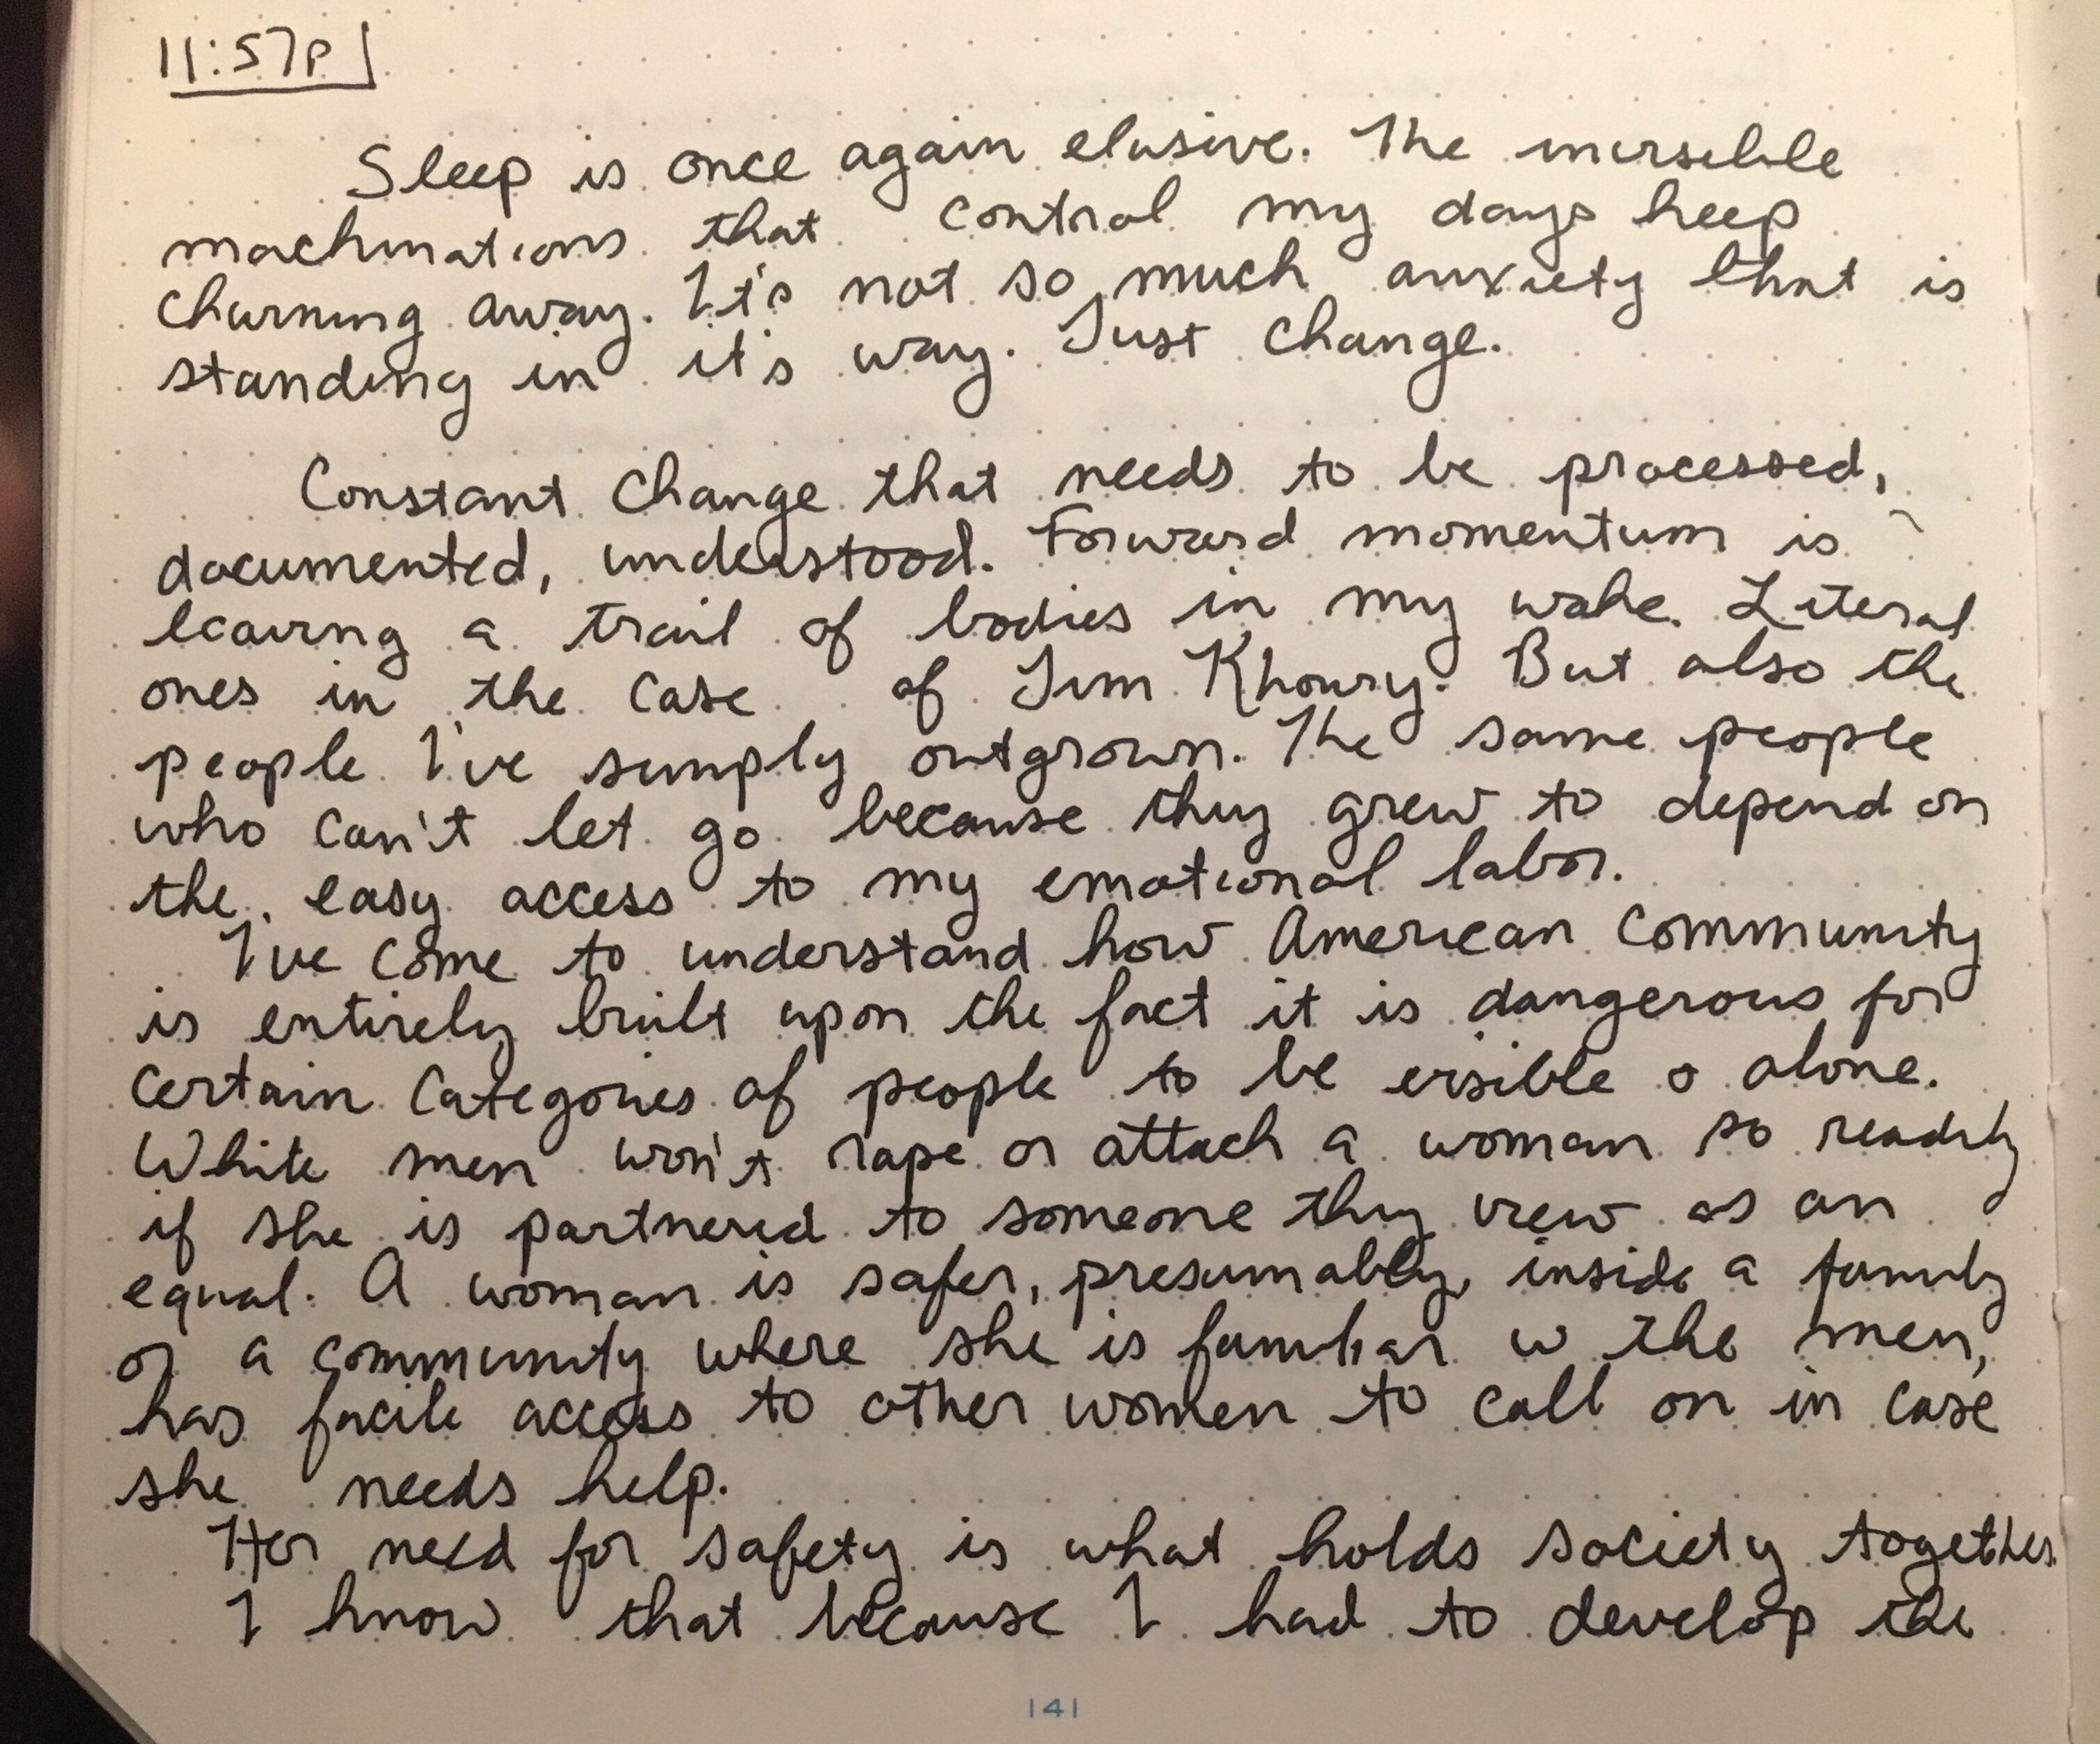 11:57p
Sleep is once again elusive. The invisible
machinations that control my days keep
churning away. It's not so much anxiety that is
standing in it's way. Just change.
Constant change that needs to be processed,
documented, understood. Forward momentum is
leaving a trail of bodies in my wake. Literal
ones in the case of Jim Khoury. But also the
people I've simply outgrown. The same people
who can't let go because they grew to depend on
the easy access to my emotional labor.
I've come to understand how American community
is entirely built upon the fact it is dangerous for
certain categories of people to be visible & alone.
White men won't rape or attack a woman so readily
if she is partnered to someone they view as an
equal. A woman is safer, presumably, inside a family
or a community where she is familiar w the men,
has facile access to other women to call on in case
she needs help.
Her need for safety is what holds society together.
I know that because I had to develop the
141